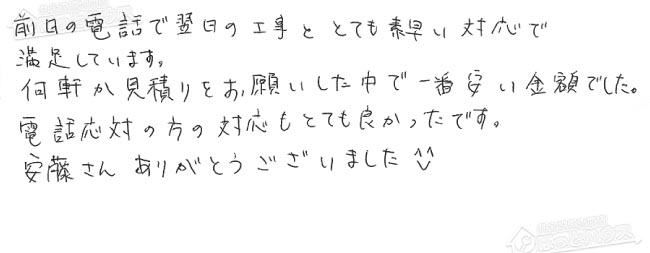 前日の電話で翌日の工事と とても素早い対応で
満足しています。
何軒か見積りをお願いした中で一番安い金額でした。
電話応対の方の対応もとても良かったです。
安藤さん ありがとうございました